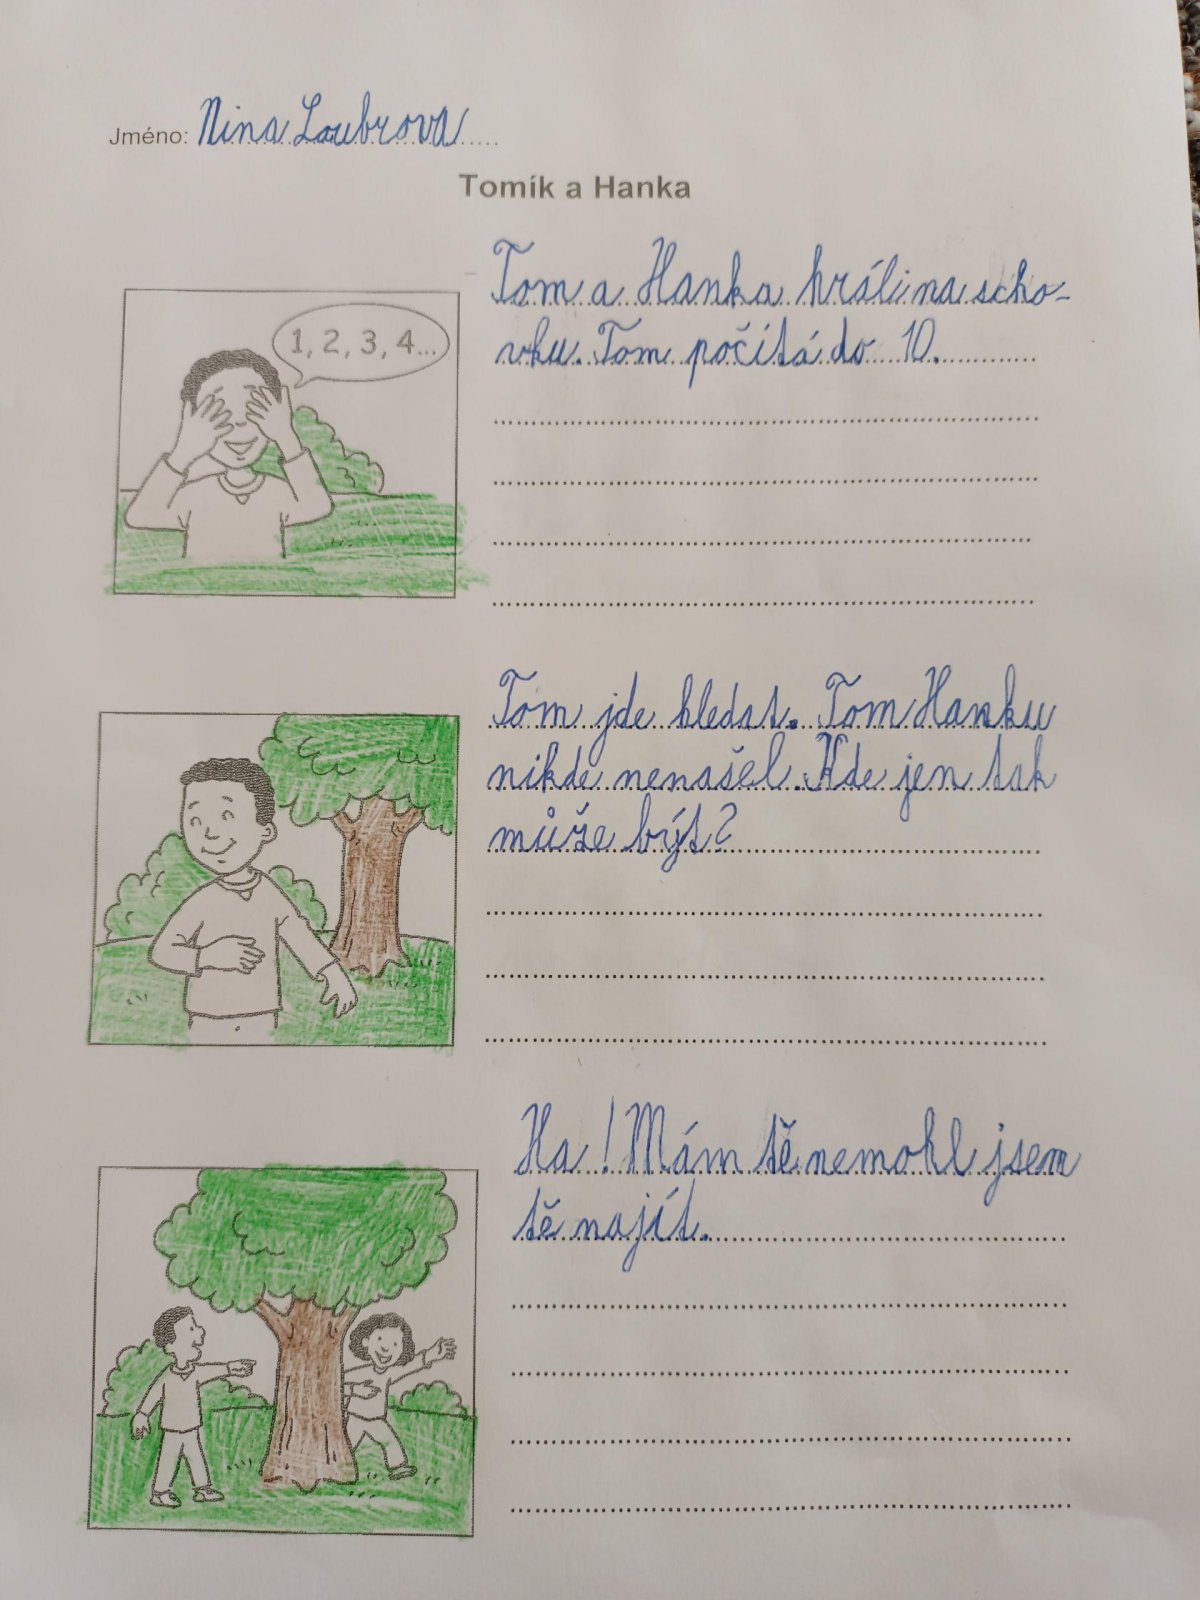 Jméno: Nina Loubrova
Tomík a Hanka
1, 2, 3, 4...
Tom a Hanka hráli na scho-
vku. Tom počítá do 10.
Tom jde hledat. Tom Hanku
nikde nenašel. Kde jen tak
může být?
Ha! Mám tě nemohl jsem
tě najít.